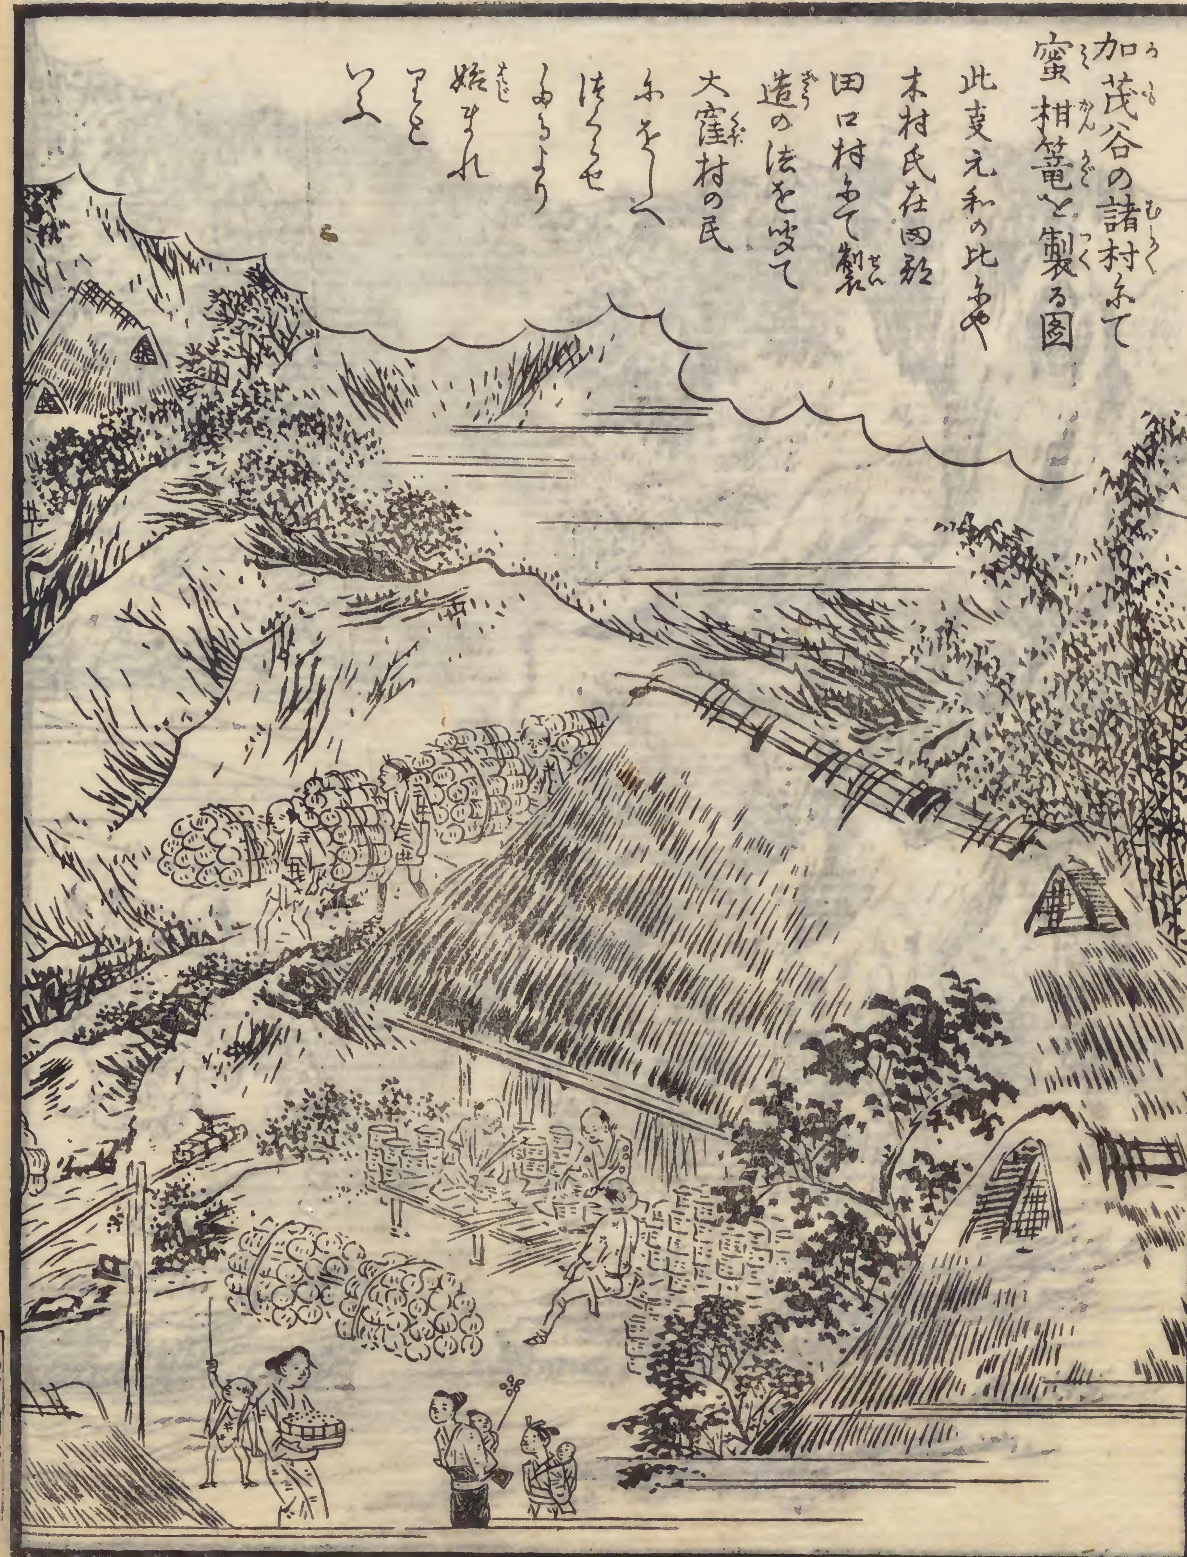 加茂谷の諸村にて
蜜柑籠を製る図
此事元和の比にや
木村氏在田郡
田口村にて製
造の法を以て
大窪村の民
にをしへ
つくらせ
しより
始まれ
りと
いふ